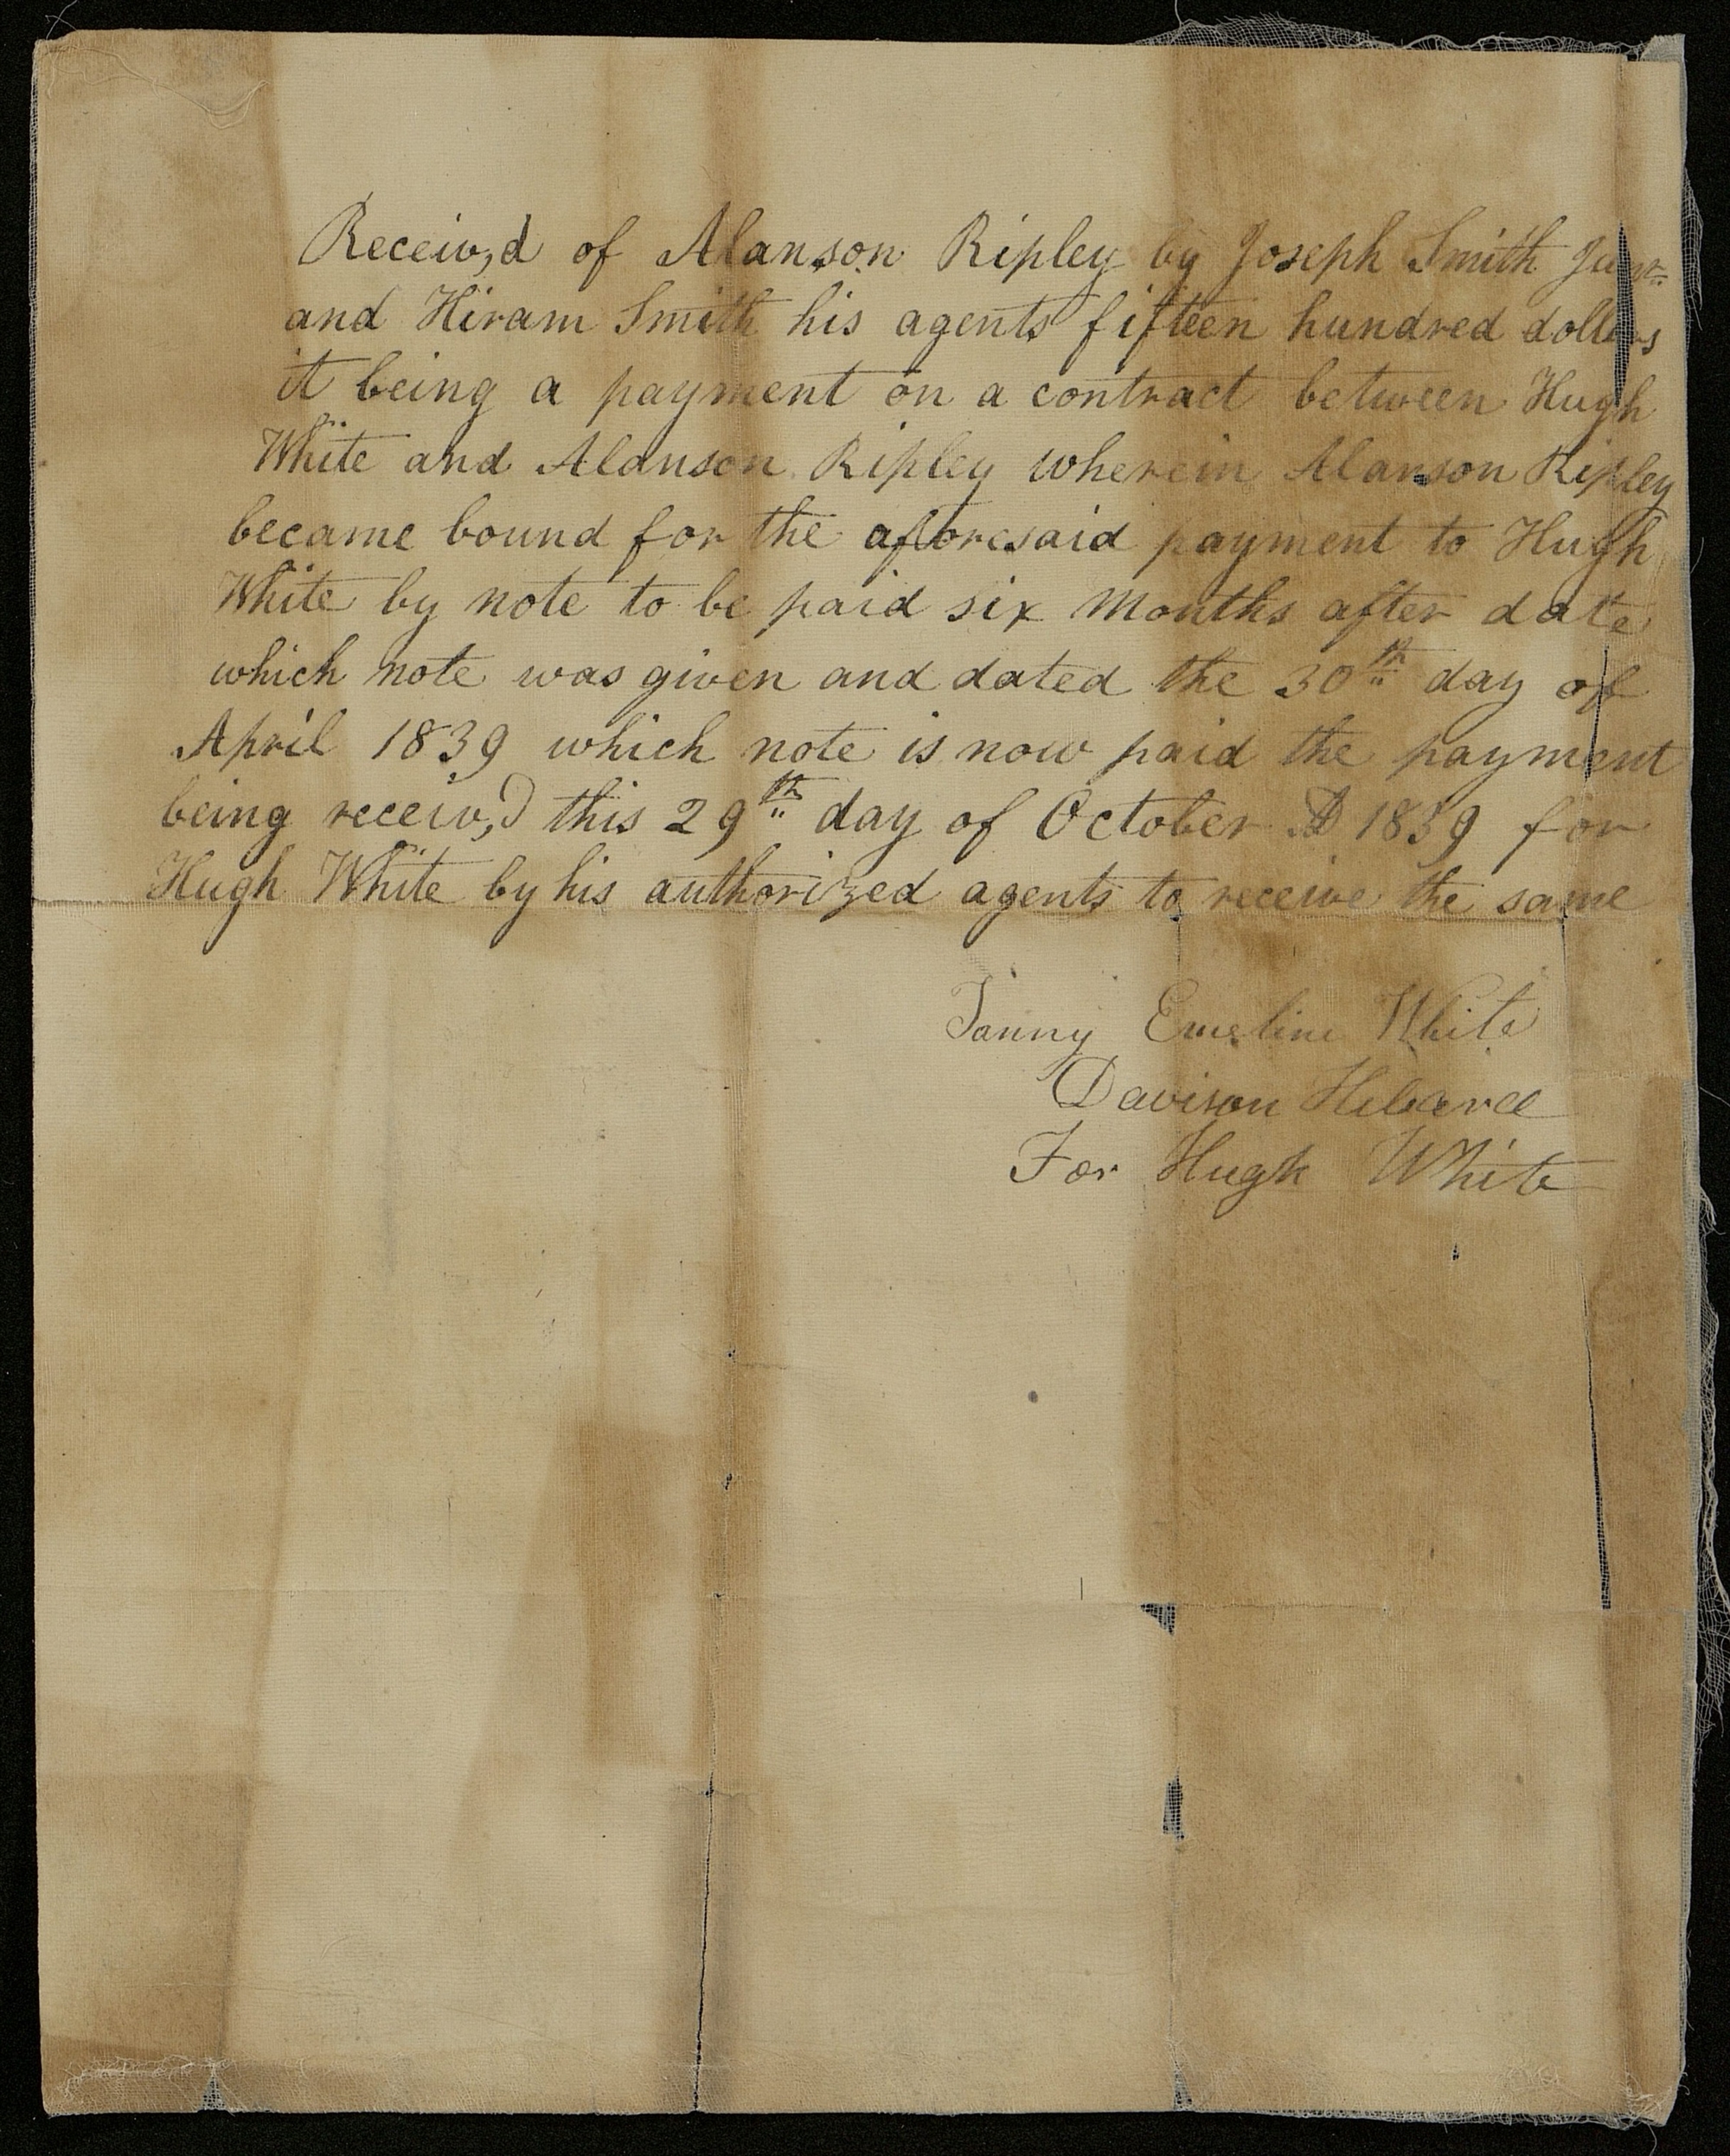 Receiv,d of Alanson Ripley by Joseph Smith Junr
and Hiram Smith his agents fifteen hundred dollars
it being a payment on a contract between Hugh
White and Alanson Ripley wherein Alanson Ripley
became bound for the aforesaid payment to Hugh
White by note to be paid six months after date
which note was given and dated the 30th day of
April 1839 which note is now paid the payment
being receiv,d this 29th day of October AD 1839 for
Hugh White by his authorized agents to receive the same
Fanny Emeline White
Davison Hibard
For Hugh White